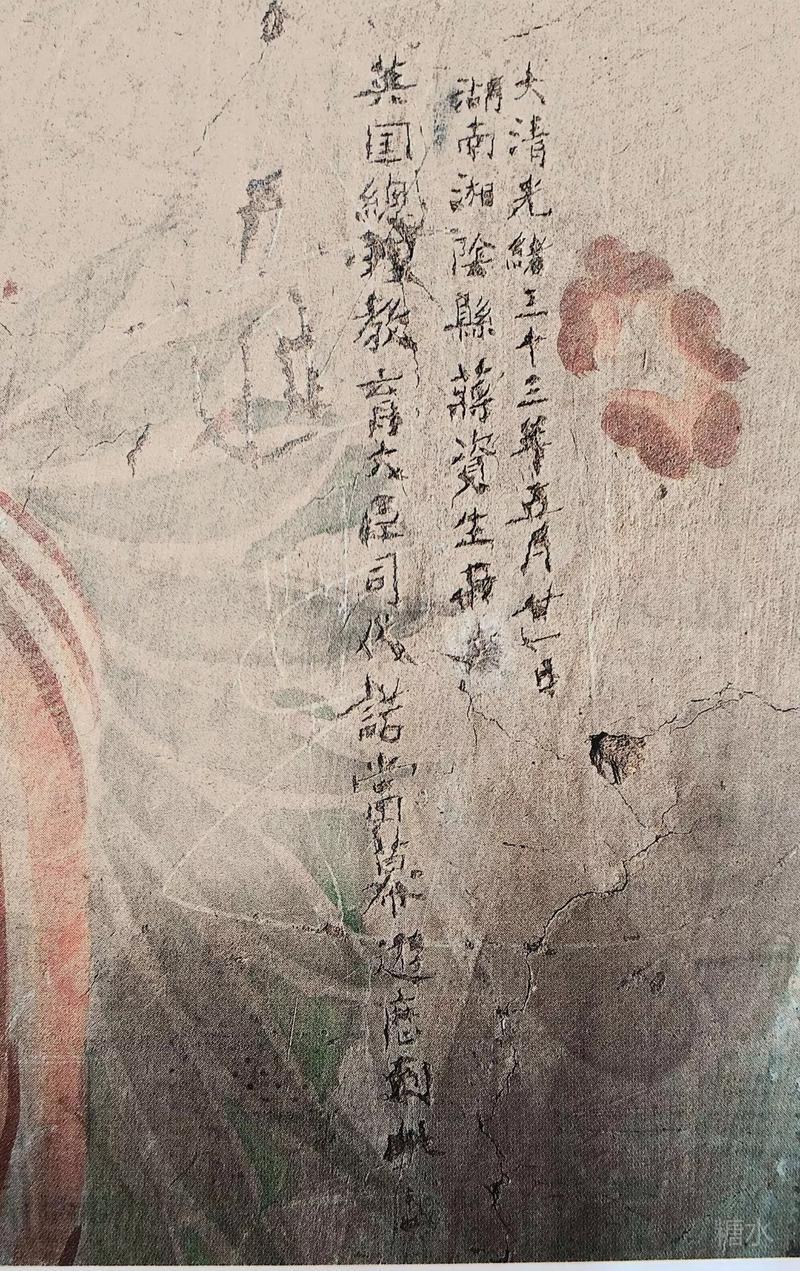 大清光緒三十三年五月廿一日
湖南湘陰縣蔣資生
英国總教育大臣司代諾當幕遊磨到此
糖水